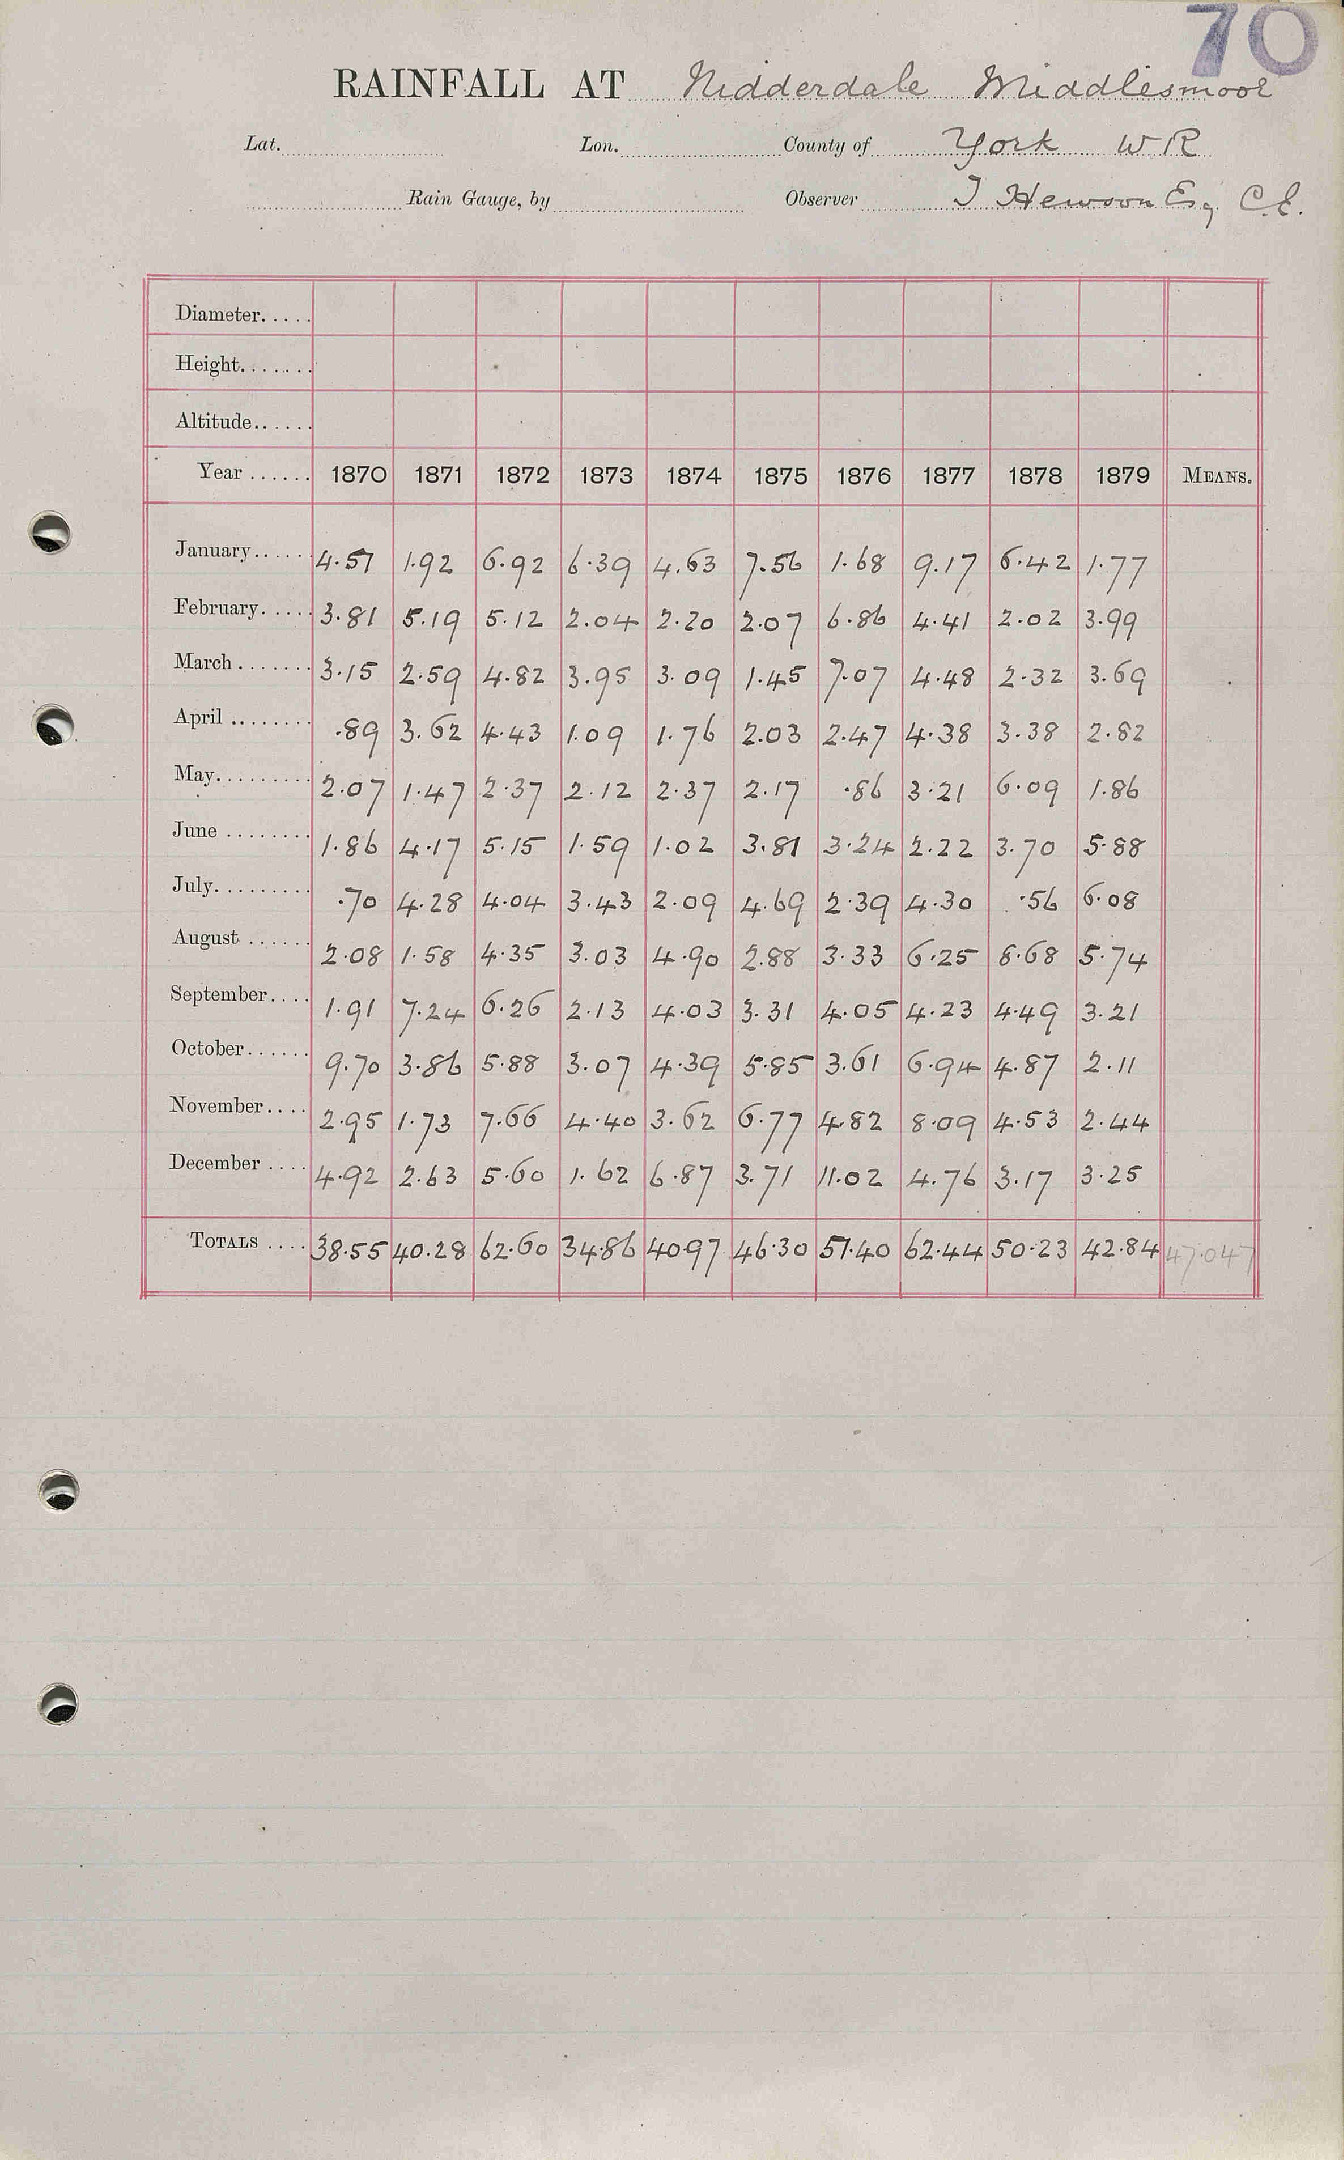 70
RAINFALL AT Nidderdale Middlesmoor
Lat. Lon. County of York W R
Rain Gauge, by Observer T Hewson Esq C.E.
Diameter
Height
Altitude
Year 1870 1871 1872 1873 1874 1875 1876 1877 1878 1879 MEANS.
January 4.51 1.92 6.92 6.39 4.63 7.56 1.68 9.17 6.42 1.77
February 3.81 5.19 5.12 2.04 2.20 2.07 6.86 4.41 2.02 3.99
March 3.15 2.59 4.82 3.95 3.09 1.45 7.07 4.48 2.32 3.69
April .89 3.62 4.43 1.09 1.76 2.03 2.47 4.38 3.38 2.82
May 2.07 1.47 2.37 2.12 2.37 2.17 .86 3.21 6.09 1.86
June 1.86 4.17 5.15 1.59 1.02 3.81 3.24 2.22 3.70 5.88
July .70 4.28 4.04 3.43 2.09 4.69 2.39 4.30 .56 6.08
August 2.08 1.58 4.35 3.03 4.90 2.88 3.33 6.25 8.68 5.74
September 1.91 7.24 6.26 2.13 4.03 3.31 4.05 4.23 4.49 3.21
October 9.70 3.86 5.88 3.07 4.39 5.85 3.61 6.94 4.87 2.11
November 2.95 1.73 7.66 4.40 3.62 6.77 4.82 8.09 4.53 2.44
December 4.92 2.63 5.60 1.62 6.87 3.71 11.02 4.76 3.17 3.25
TOTALS 38.55 40.28 62.60 34.86 40.97 46.30 51.40 62.44 50.23 42.84 47.047